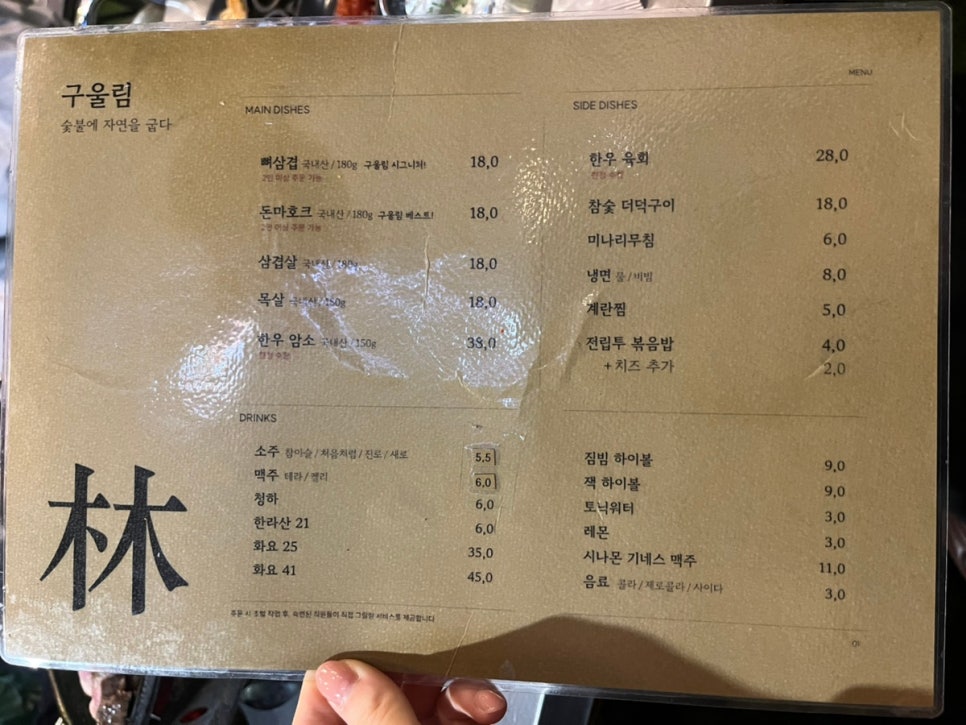 구울림
숯불에 자연을 굽다
林
MENU
MAIN DISHES
뼈삼겹 국내산 / 180g 구울림 시그니처! 18,0
2인 이상 주문 가능
돈마호크 국내산 / 180g 구울림 베스트! 18,0
2인 이상 주문 가능
삼겹살 국내산 / 180g 18,0
목살 국내산 / 150g 18,0
한우 암소 국내산 / 150g 38,0
한정 수량
SIDE DISHES
한우 육회 28,0
한정 수량
참숯 더덕구이 18,0
미나리무침 6,0
냉면 물 / 비빔 8,0
계란찜 5,0
전립투 볶음밥 4,0
+ 치즈 추가 2,0
DRINKS
소주 참이슬 / 처음처럼 / 진로 / 새로 5,5
맥주 테라 / 켈리 6,0
청하 6,0
한라산 21 6,0
화요 25 35,0
화요 41 45,0
짐빔 하이볼 9,0
잭 하이볼 9,0
토닉워터 3,0
레몬 3,0
시나몬 기네스 맥주 11,0
음료 콜라 / 제로콜라 / 사이다 3,0
주문 시 초벌 작업 후, 숙련된 직원들이 직접 그릴링 서비스를 제공합니다
01